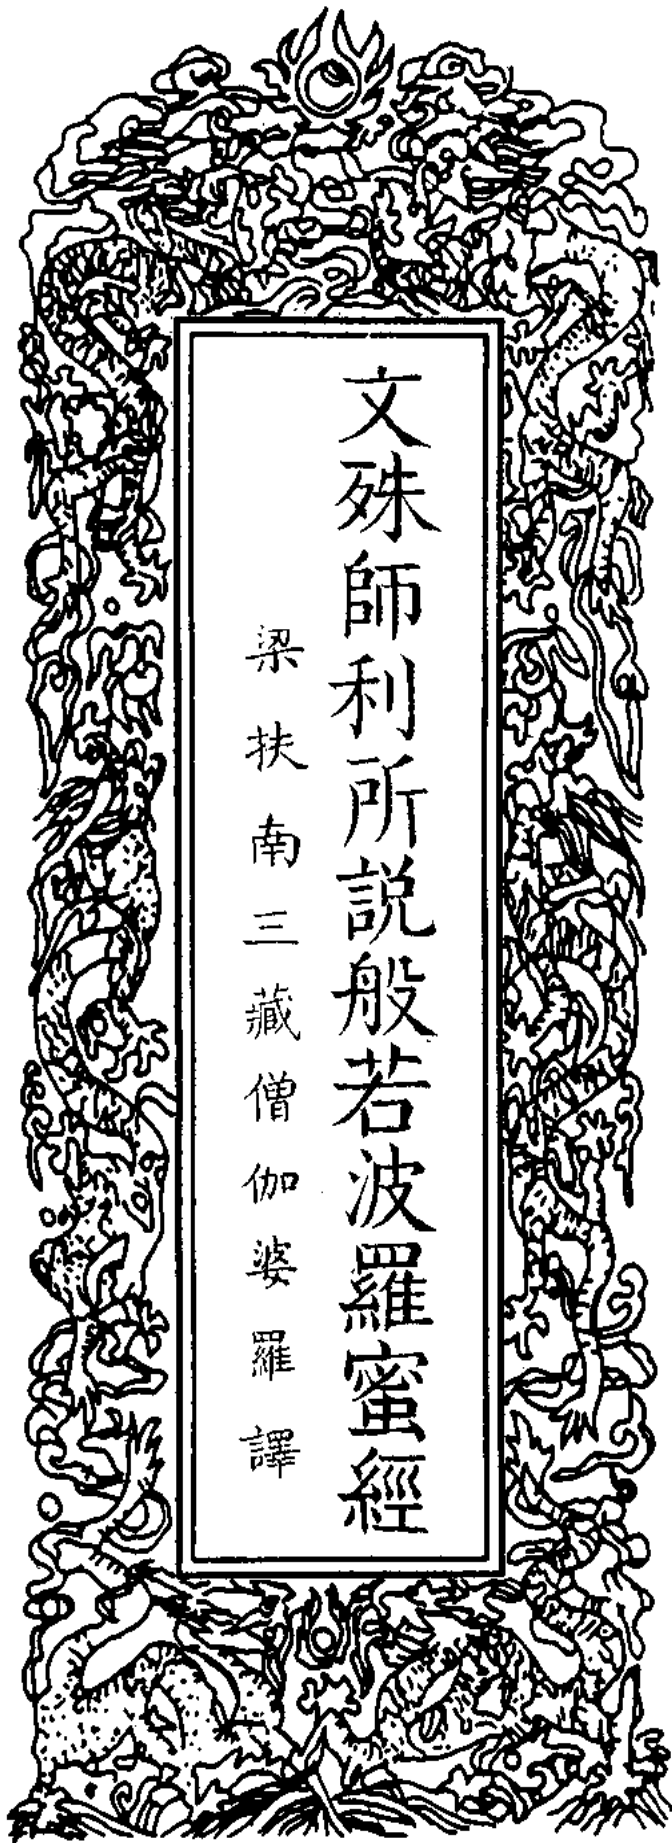 文殊師利所説般若波羅蜜經
梁扶南三藏僧伽婆羅譯